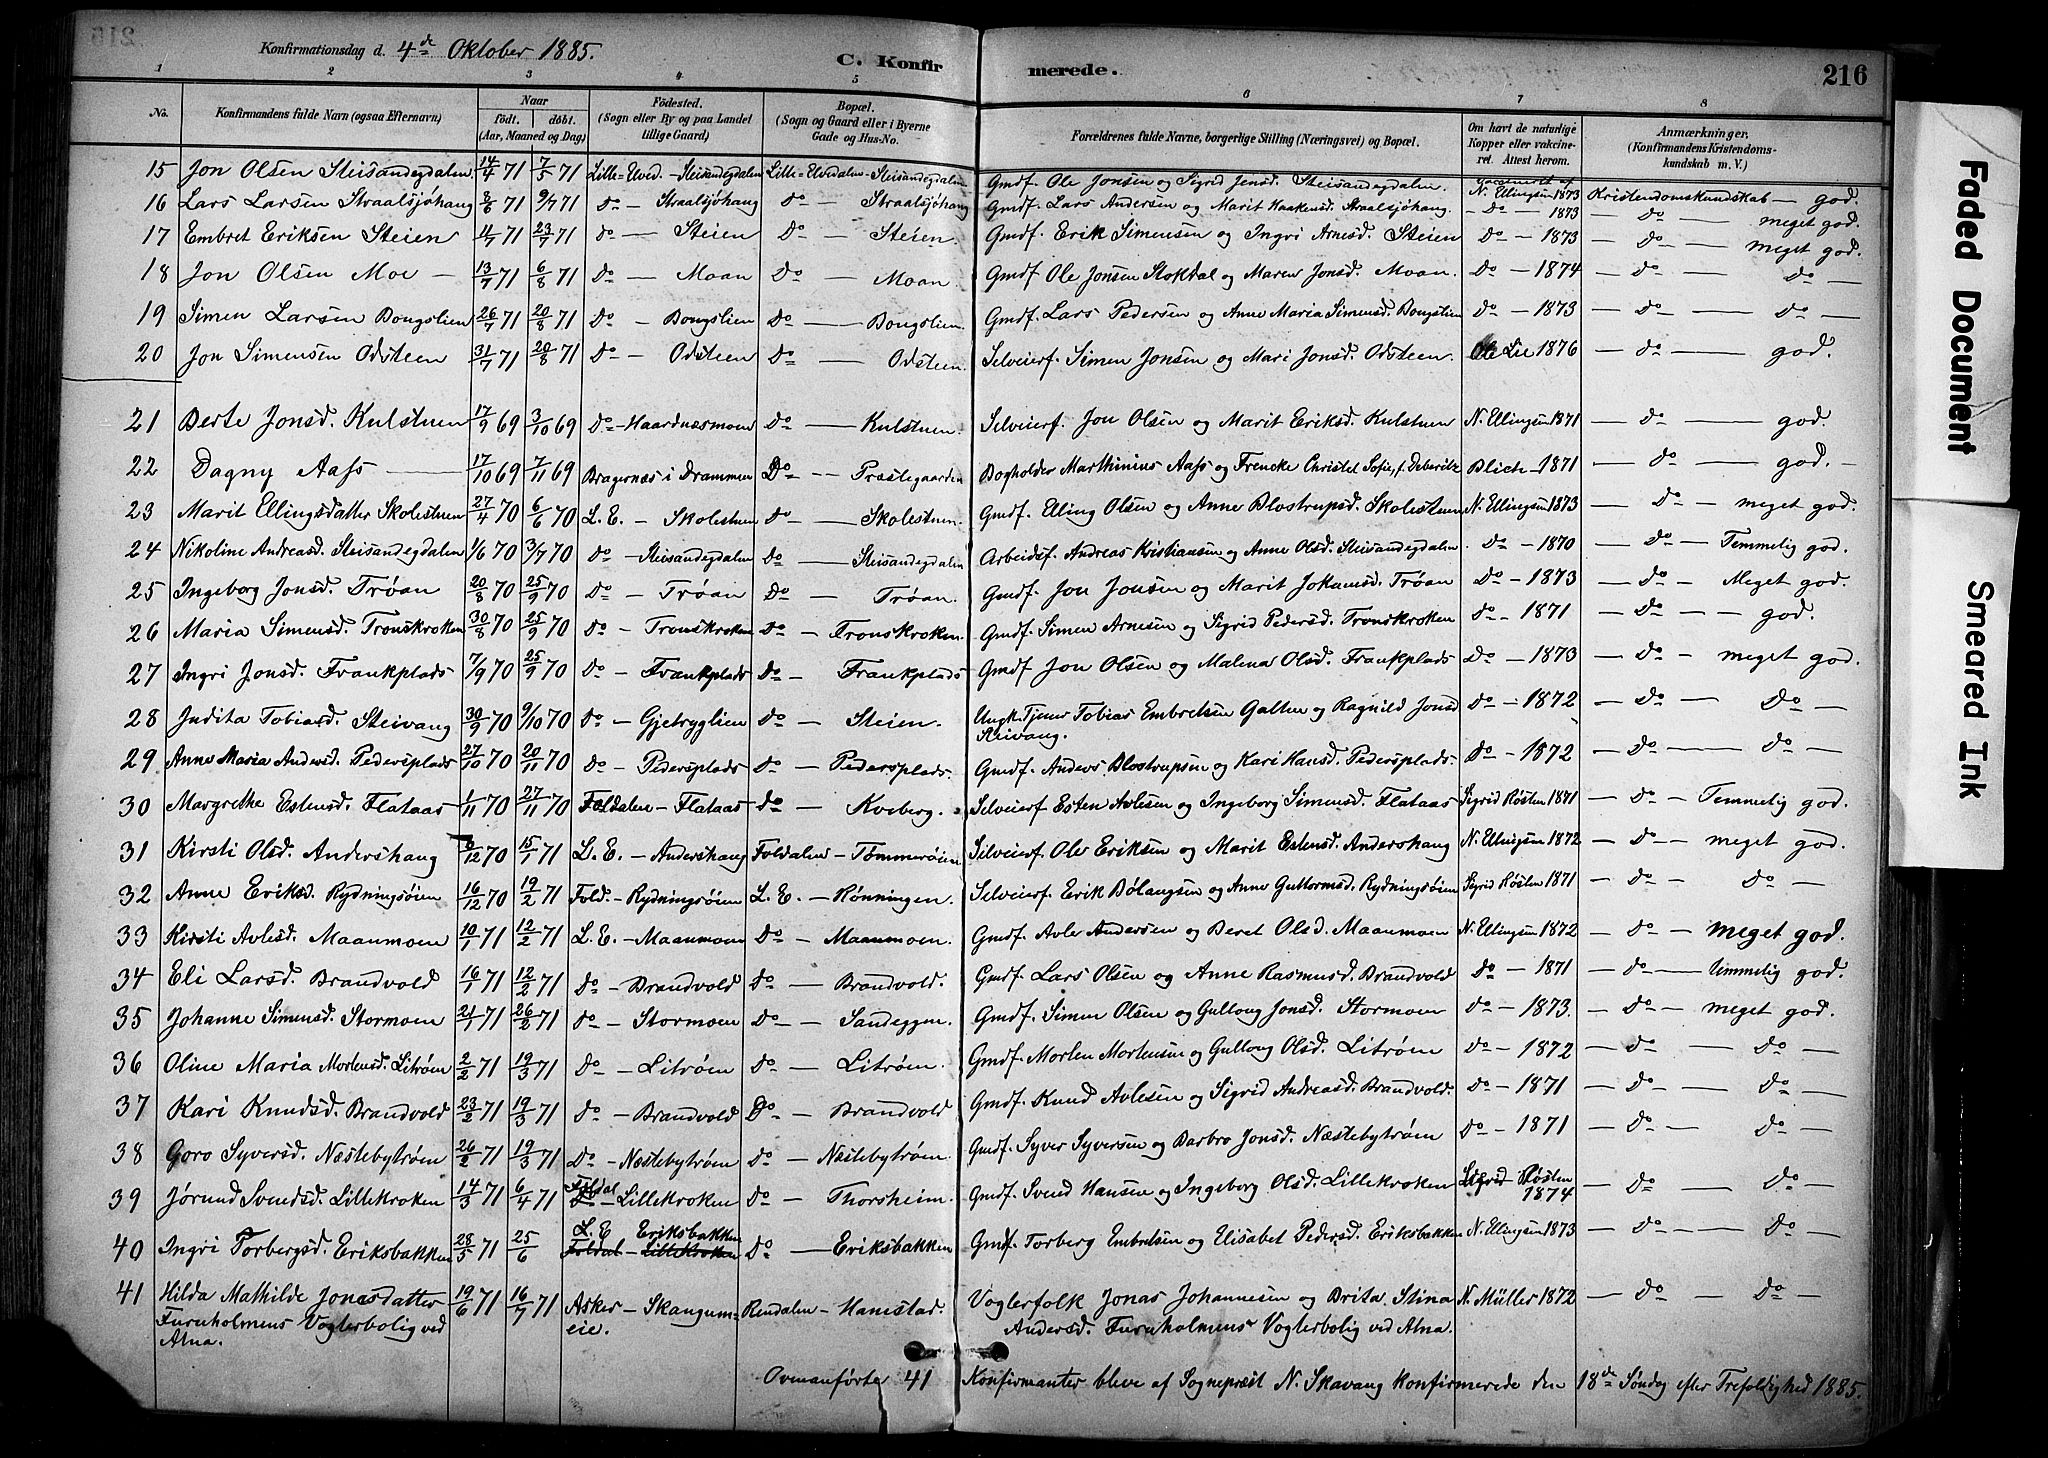 Konfirmationsdag d. 4de Oktober 1885. C. Konfirmerede. 216
1 2 3 4 5 6 7 8
No. Konfirmandens fulde Navn (ogsaa Efternavn) Naar født. døbt. (Aar, Maaned og Dag) Fødested. (Sogn eller By og paa Landet tillige Gaard) Bopæl. (Sogn og Gaard eller i Byerne Gade og Hus-No. Forældrenes fulde Navne, borgerlige Stilling (Næringsvei) og Bopæl. Om havt de naturlige Kopper eller vakcineret. Attest herom. Anmærkninger. (Konfirmandens Kristendomskundskab m. V.)
15 Jon Olsen Steisandegdalen 14/4 71 7/5 71 Lille=Elved. - Steisandegdalen Lille=Elvedalen - Steisandegdalen Gmdf. Ole Jonsen og Sigrid Jensd. Steisandegdalen. vaccineret af N. Ellingsen 1873 Kristendomskundskab - god.
16 Lars Larsen Straalsjøhang 8/6 71 9/7 71 do - Straalsjøhang do - Straalsjøhang Gmdf. Lars Andersen og Marit Haakensd. Straalsjøhang. - do - 1873 - do - meget god.
17 Embret Eriksen Steien 4/7 71 23/7 71 do - Steien do - Steien. Gmdf. Erik Simensen og Ingri Arnesd. Steien do - 1873 - do - meget god.
18 Jon Olsen Moe - 13/7 71 6/8 71 do - Moan do - Moan. Gmdf Ole Jonsen Stoktdal og Maren Jonsd. Moan. do - 1874 - do - do -
19 Simen Larsen Bongslien 26/7 71 20/8 71 do - Bongslien do - Bongslien. Gmdf. Lars Pedersen og Anne Maria Simensd. Bongslien do - 1873 - do - do -
20 Jon Simensen Odsteen 31/7 71 20/8 71 do - Odsteen do - Odsteen. Selveierf. Simen Jonsen og Mari Jonsd. Odsteen. Ole Lie 1876 - do - god.
21 Berte Jonsd. Kulstuen 17/9 69 3/10 69 do - Haardnæsmoen do - Kulstuen. Selveierf. Jon Olsen og Marit Eriksd. Kulstuen N. Ellingsen 1871 - do - god.
22 Dagny Aass - 17/10 69 7/11 69 Bragernæs i Drammen do - Præstegaarden Bogholder Marthinius Aass og Frencke Christel Sofie, f. Deberitz Blich - 1871 - do - god. -
23 Marit Ellingsdatter Skolestuen 27/4 70 6/6 70 L. E. - Skolestuen do - Skolestuen. Gmdf. Elling Olsen og Anne Blostrupsd. Skolestuen N. Ellingsen 1873 - do - meget god.
24 Nikoline Andreasd. Steisandegdalen 1/6 70 3/7 70 do - Steisandegdalen do - Steisandegdalen Arbeidsf. Andreas Kristiansen og Anne Olsd. Steisandegdalen. do - 1870 - do - Temmelig god.
25 Ingeborg Jonsd. Trøan 20/8 70 25/9 70 do - Trøan do - Trøan. Gmdf. Jon Jonsen og Marit Johansd. Trøan do - 1873 - do - Meget god.
26 Maria Simensd. Tronskroken 30/8 70 25/9 70 do - Tronskroken do - Tronskroken. Gmdf. Simen Arnesen og Sigrid Pedersd. Tronskroken do - 1871 - do - god.
27 Ingri Jonsd. Frankplads 7/9 70 25/9 70 do - Frankplads do - Frankplads Gmdf Jon Olsen og Malena Olsd. Frankplads do - 1873 - do - meget god.
28 Judita Tobiasd. Steivang 30/9 70 9/10 70 do - Gjetryglien do - Steien. Ungk. Tjener Tobias Embretsen Galten og Ragnild Jonsd Steivang. do - 1872 - do - do -
29 Anne Maria Andersd. Pedersplads 27/10 70 20/11 70 do - Pedersplads do - Pedersplads. Gmdf. Anders Blostrupsen og Kari Hansd. Pedersplads. do - 1872 - do - do -
30 Margrethe Estensd. Flataas 1/11 70 27/11 70 Foldalen - Flataas do - Kveberg. Selveierf Esten Avlesen og Ingeborg Simensd. Flataas Sigrid Røsten 1871 - do - Temmelig god.
31 Kirsti Olsd. Andershang 6/12 70 15/1 71 L. E. - Andershang Foldalen - Tømmerøien. Selveierf. Ole Eriksen og Marit Estensd. Andershang N. Ellingsen 1872 - do - meget god.
32 Anne Eriksd. Rydningsøien 16/12 70 19/2 71 Fold. - Rydningsøien L. E. - Rønningen. Selveierf. Erik Bølangsen og Anne Guttormsd. Rydningsøien Sigrid Røsten 1871 - do - do -
33 Kirsti Avlesd. Maanmoen 10/1 71 12/2 71 L. E. - Maanmoen do - Maanmoen. Gmdf. Avle Andersen og Beret Olsd. Maanmoen N. Ellingsen 1872 - do - meget god.
34 Eli Larsd. Brandvold 16/1 71 12/2 71 do - Brandvold do - Brandvold. Gmdf. Lars Olsen og Anne Rasmusd. Brandvold do - 1871 - do - temmelig god.
35 Johanne Simensd. Stormoen 21/1 71 26/2 71 do - Stormoen do - Sandeggen. Gmdf. Simen Olsen og Gullong Jonsd. Stormoen do - 1873. - do - meget god.
36 Oline Maria Mortensd. Litrøen 2/2 71 19/3 71 do - Litrøen do - Litrøen. Gmdf. Morten Mortensen og Gullong Olsd. Litrøen do - 1872 - do - do -
37 Kari Knudsd. Brandvold 23/2 71 19/3 71 do - Brandvold do - Brandvold Gmdf. Knud Avlesen og Sigrid Andreasd. Brandvold. do - 1871 - do - do -
38 Goro Syversd. Næstebytrøen 26/2 71 19/3 71 do - Næstebytrøen do - Næstebytrøen. Gmdf. Syver Syversen og Barbro Jonsd. Næstebytrøen do - 1871 - do - do -
39 Jørund Svendsd. Lillekroken 14/3 71 6/4 71 Foldal - Lillekroken do - Thorsheim. Gmdf. Svend Hansen og Ingeborg Olsd. Lillekroken Sigrid Røsten 1874 - do - do -
40 Ingri Torbergsd. Eriksbakken 28/5 71 25/6 L. E Eriksbakken Foldal - Lillekroken do - Eriksbakken Gmdf. Torberg Embretsen og Elisabet Pedersd. Eriksbakken N. Ellingsen 1873 - do - do -
41 Hilda Mathilde Jonasdatter Furuholmens Voglerbolig ved Atna. 19/6 71 16/7 71 Asker - Skangum=eie. Rendalen - Hanestad. Voglerfolk Jonas Johannesen og Brita Stina Andersd. Furuholmens Voglerbolig ved Atna. N. Müller 1872 - do - do -
Ovenanførte 41 Konfirmanter bleve af Sognepræst N. Skavang konfirmerede den 18de Søndag efter Trefoldighed 1885.
Faded Document
Smeared Ink